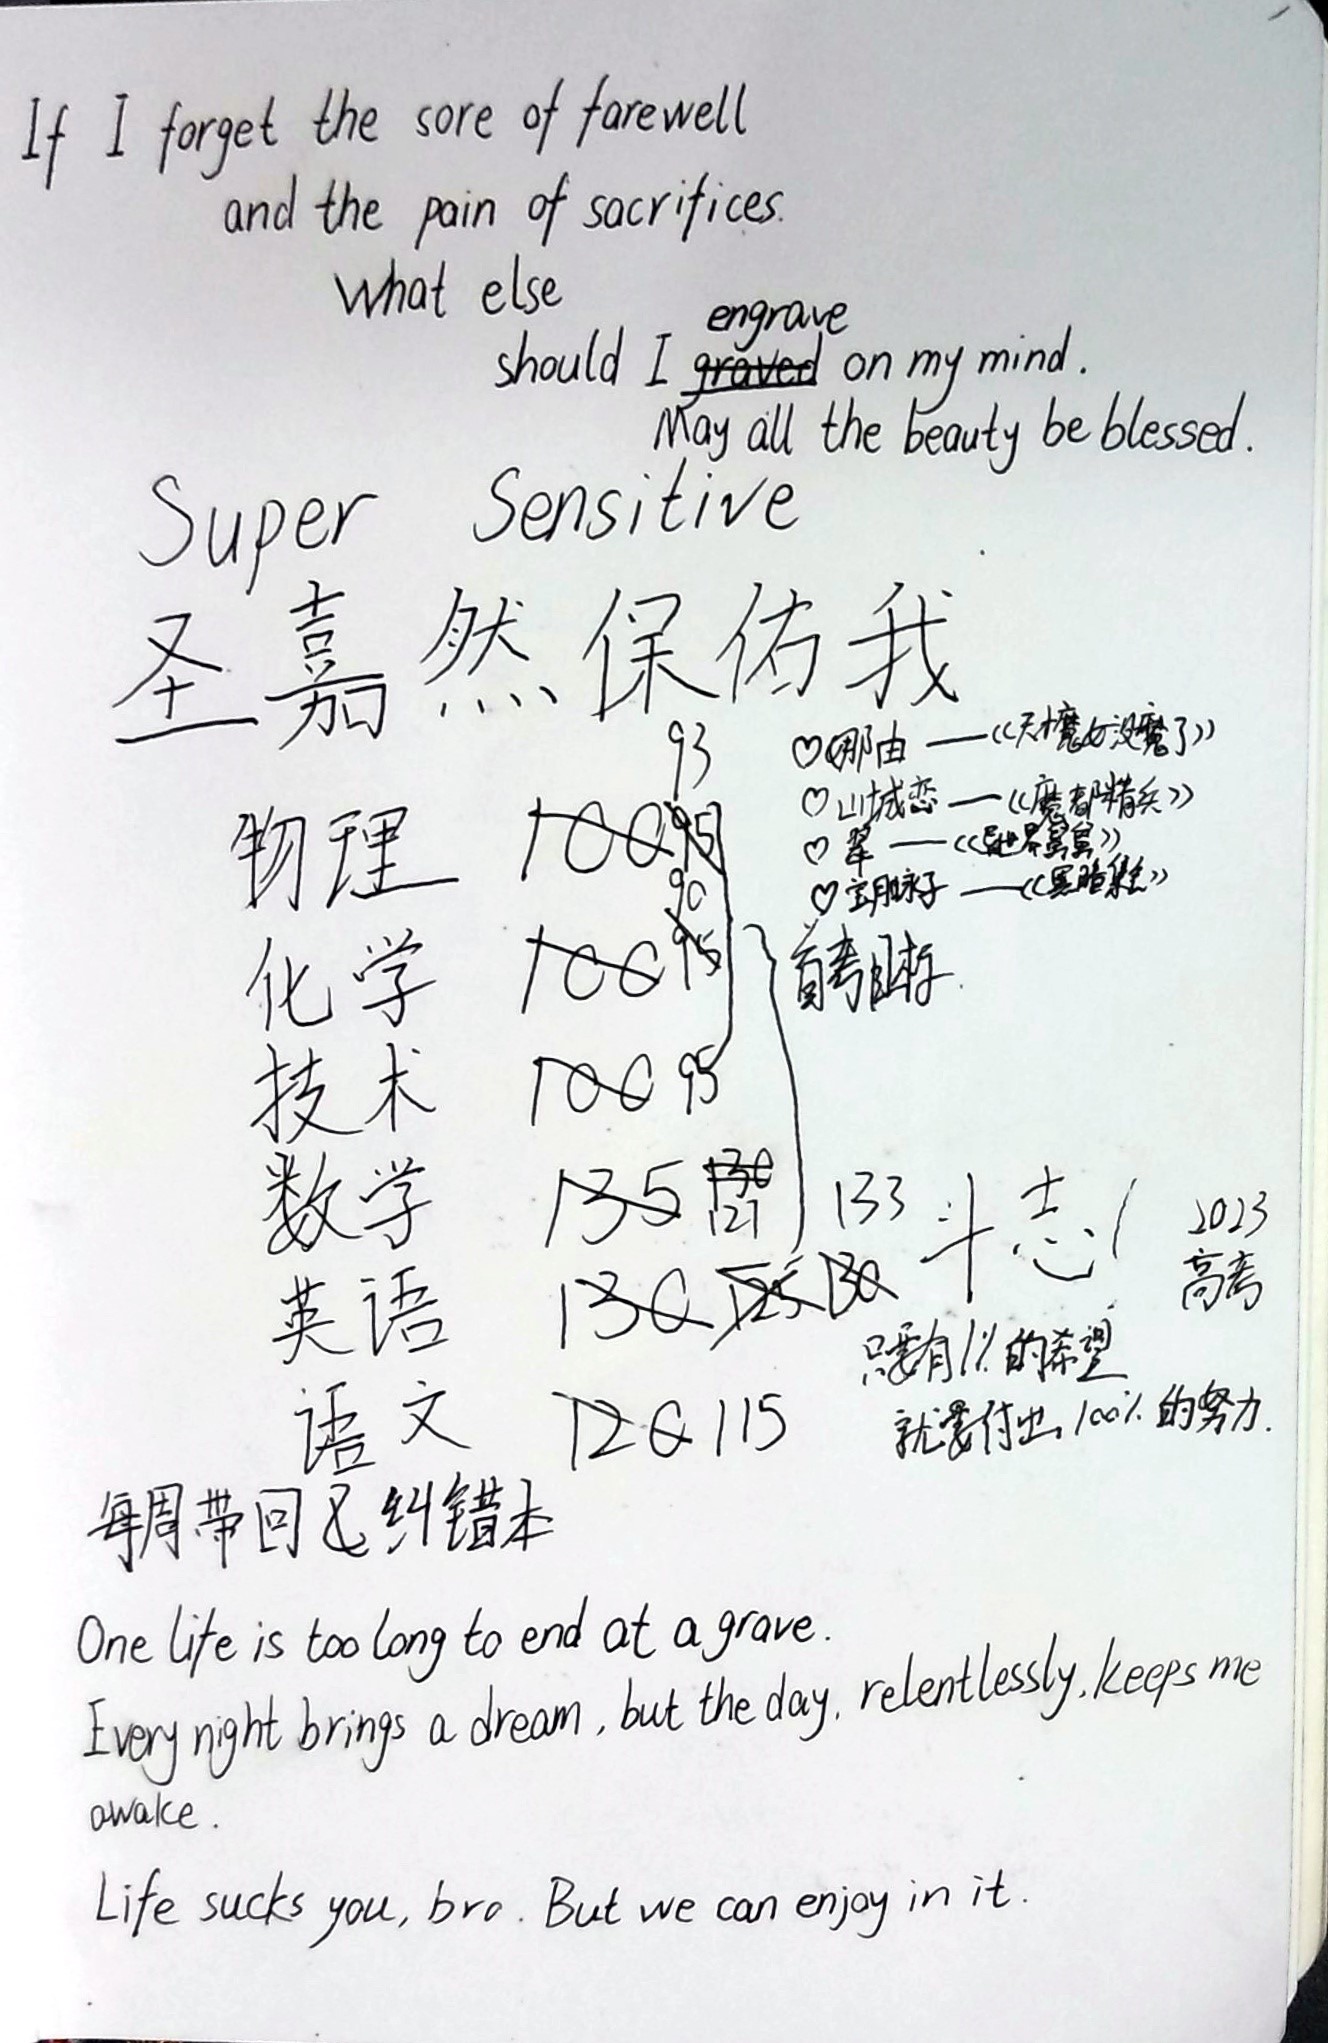 If I forget the sore of farewell
and the pain of sacrifices.
What else
engrave
should I graved on my mind.
May all the beauty be blessed.
Super Sensitive
圣嘉然保佑我
93
♡那由——《天才魔女没魔了》
♡山城恋——《魔都精兵》
♡翠——《异世界舅舅》
♡宝月咏子——《黑暗集会》
物理 100 95
90
化学 100 95
首考目标
技术 100 95
数学 135 130 121 133
斗志!
2023
高考
英语 130 125 130
只要有1%的希望
就要付出100%的努力.
语文 120 115
每周带回纠错本
One life is too long to end at a grave.
Every night brings a dream, but the day, relentlessly, keeps me
awake.
Life sucks you, bro. But we can enjoy in it.